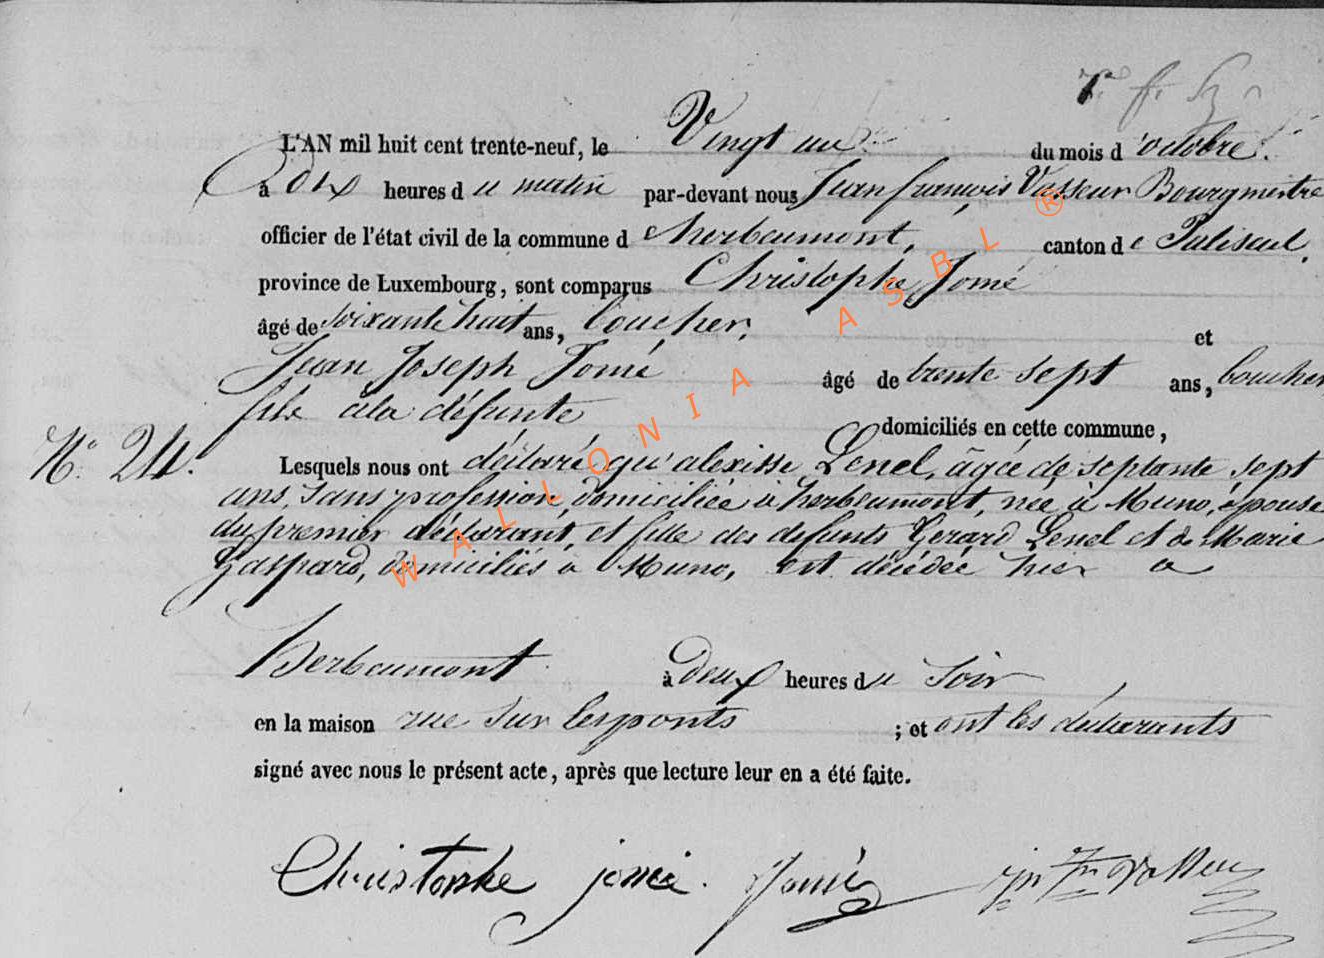 L'AN mil huit cent trente-neuf, le Vingt un du mois d'octobre.
à dix heures du matin par-devant nous Jean françois Vasseur Bourgmestre
officier de l'état civil de la commune d'herbeumont, canton de Paliseul,
province de Luxembourg, sont comparus Christophe Jomé
âgé de soixante huit ans, boucher, et
Jean Joseph Jomé, âgé de trente sept ans, boucher
fils à la défunte domiciliés en cette commune,
N° 24.
Lesquels nous ont déclaré qu'alexisse Lenel, âgée de septante sept
ans, sans profession, domiciliée à herbeumont, née à Muno, épouse
du premier déclarant, et fille des defunts Gerard Lenel et de Marie
Gaspard, domiciliés à Muno, est décédée hier a
herbeumont à deux heures du soir
en la maison rue sur les ponts ; et ont les déclarants
signé avec nous le présent acte, après que lecture leur en a été faite.
Christophe jomé. Jomé
WALLONIA ASBL ®